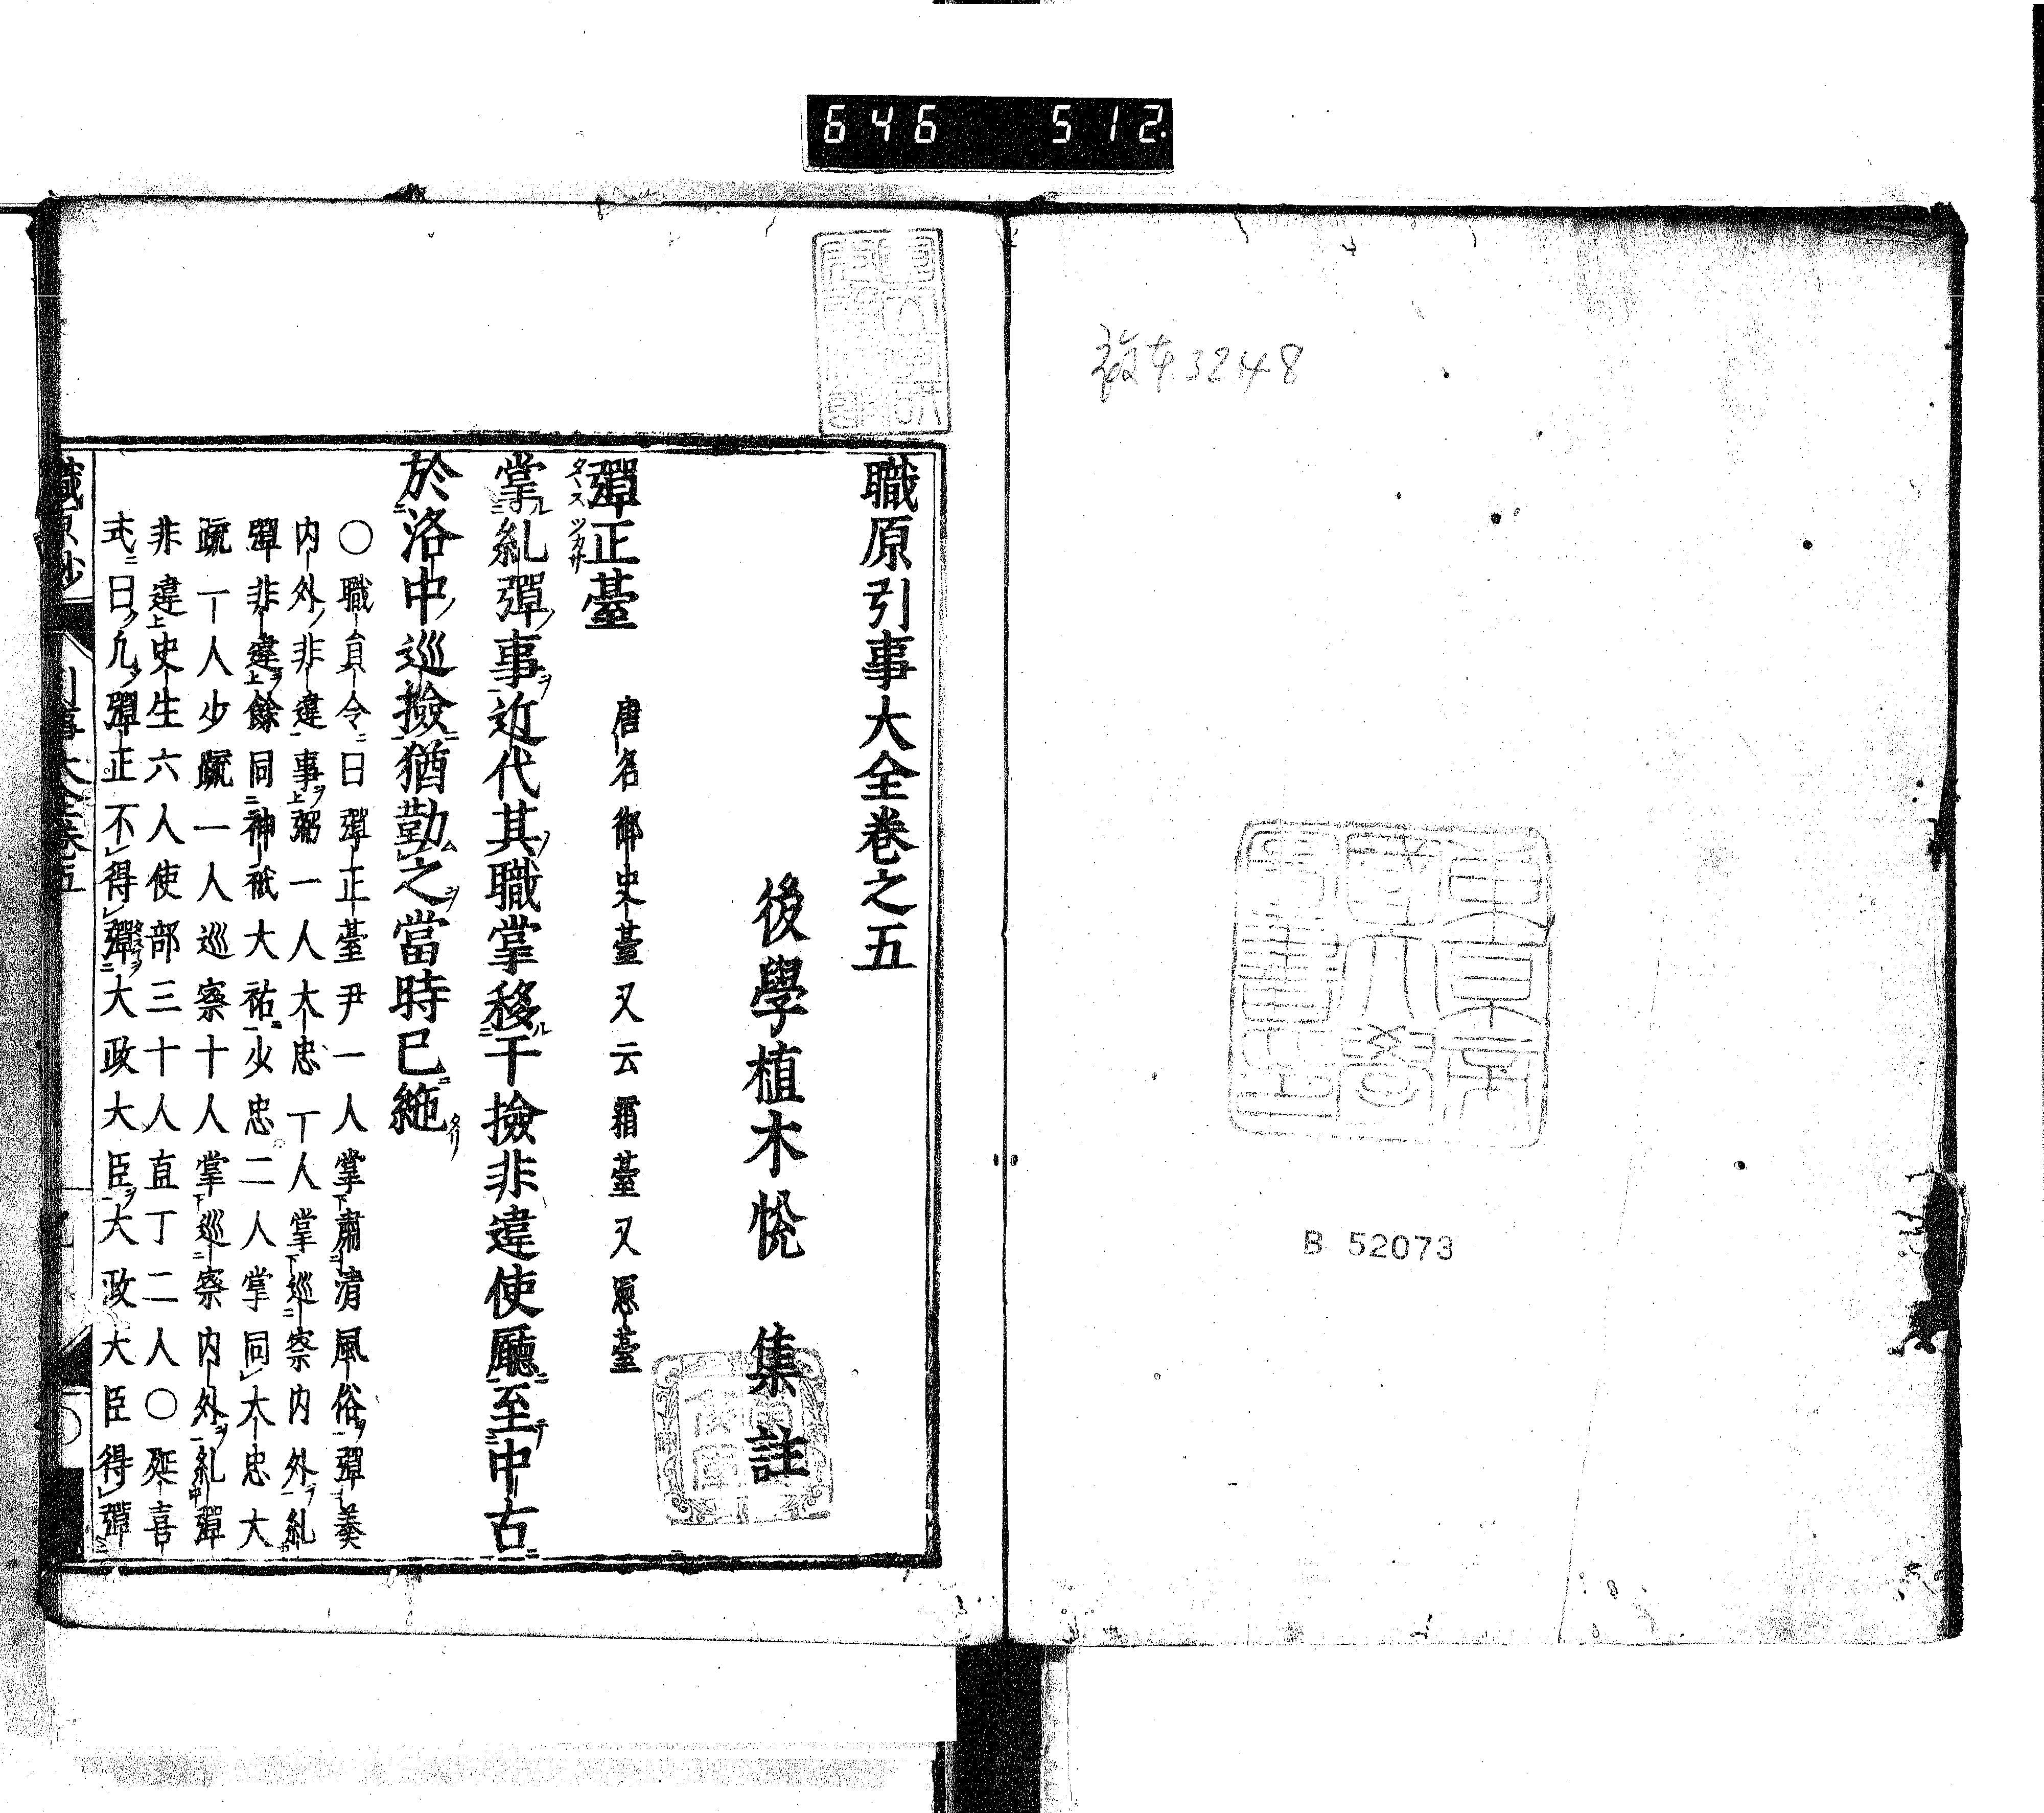 646 512
複本3248
東京帝國大學圖書印
B 52073
職原引事大全卷之五
後學植木悅 集註
彈正臺 唐名御史臺又云霜臺又憲臺
タヽスツカサ
掌糺彈事近代其職掌移于撿非違使廳至中古
於洛中巡撿猶勤之當時已絁
〇職員令曰彈正臺尹一人掌肅清風俗彈奏
内外非違事弼一人大忠一人掌巡察内外糺
彈非違餘同神祇大祐少忠二人掌同大忠大
疏一人少疏一人巡察十人掌巡察内外糺彈
非違史生六人使部三十人直丁二人〇延喜
式曰凢彈正不得彈大政大臣大政大臣得彈